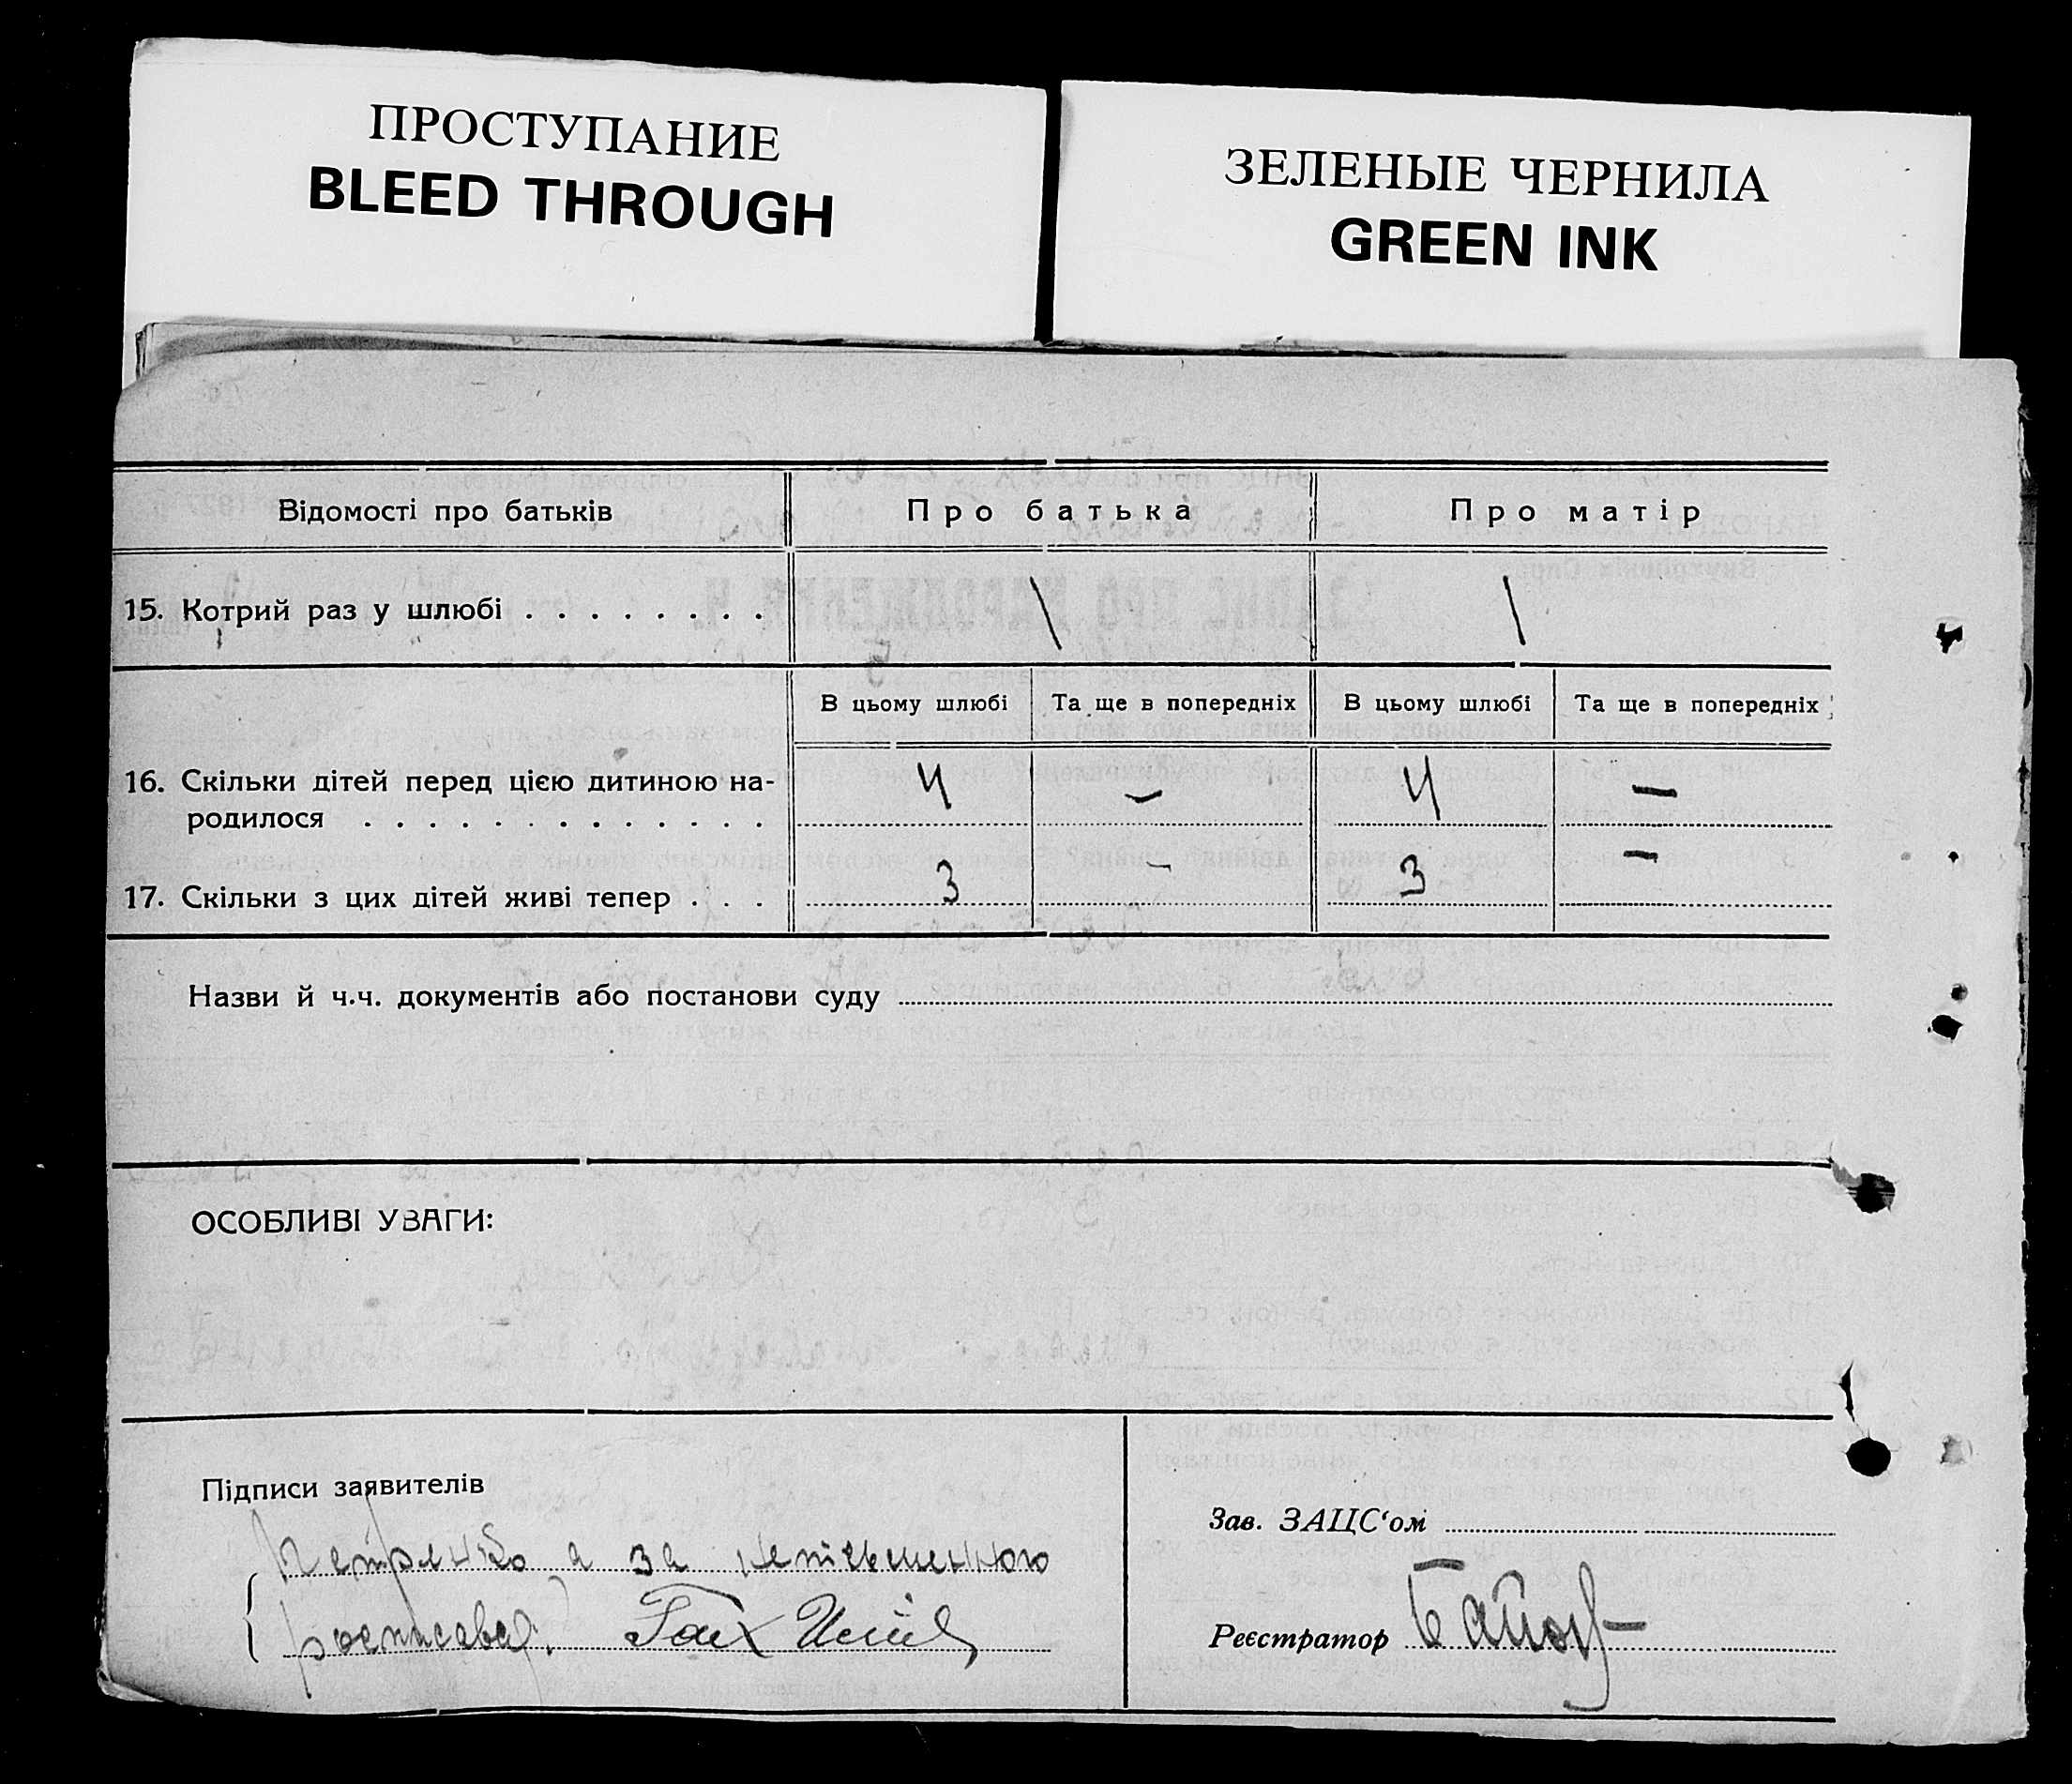 ПРОСТУПАНИЕ
BLEED THROUGH
ЗЕЛЕНЫЕ ЧЕРНИЛА
GREEN INK
Відомості про батьків Про батька Про матір
15. Котрий раз у шлюбі . . . . . . . . \ \
В цьому шлюбі Та ще в попередніх В цьому шлюбі Та ще в попередніх
16. Скільки дітей перед цією дитиною на- 4 — 4 —
родилося . . . . . . . . . . . . .
17. Скільки з цих дітей живі тепер . . . 3 - 3 —
Назви й ч.ч. документів або постанови суду
ОСОБЛИВІ УВАГИ:
Підписи заявителів
Петренко а за неписьменного
Зав. ЗАЦС‘ом
росписався Гах
Реєстратор